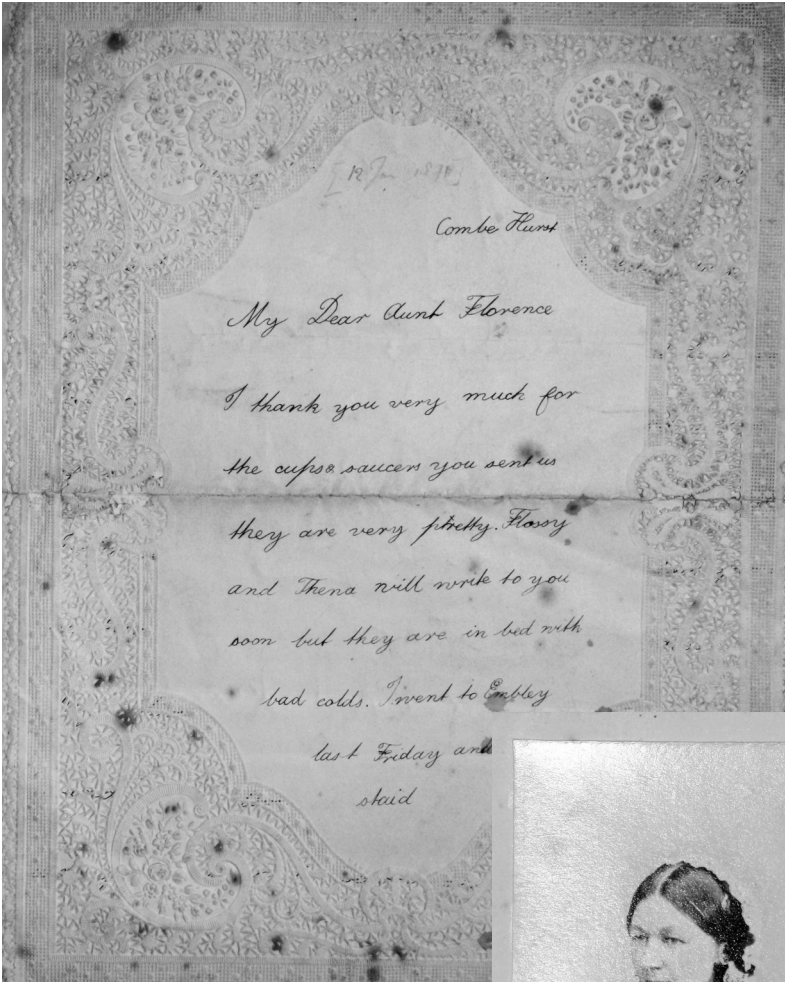 [12 Jan 187
Combe Hurst
My Dear Aunt Florence
I thank you very much for
the cups & saucers you sent us
they are very pretty. Flossy
and Thena will write to you
soon but they are in bed with
bad colds. I went to Embley
last Friday and
staid